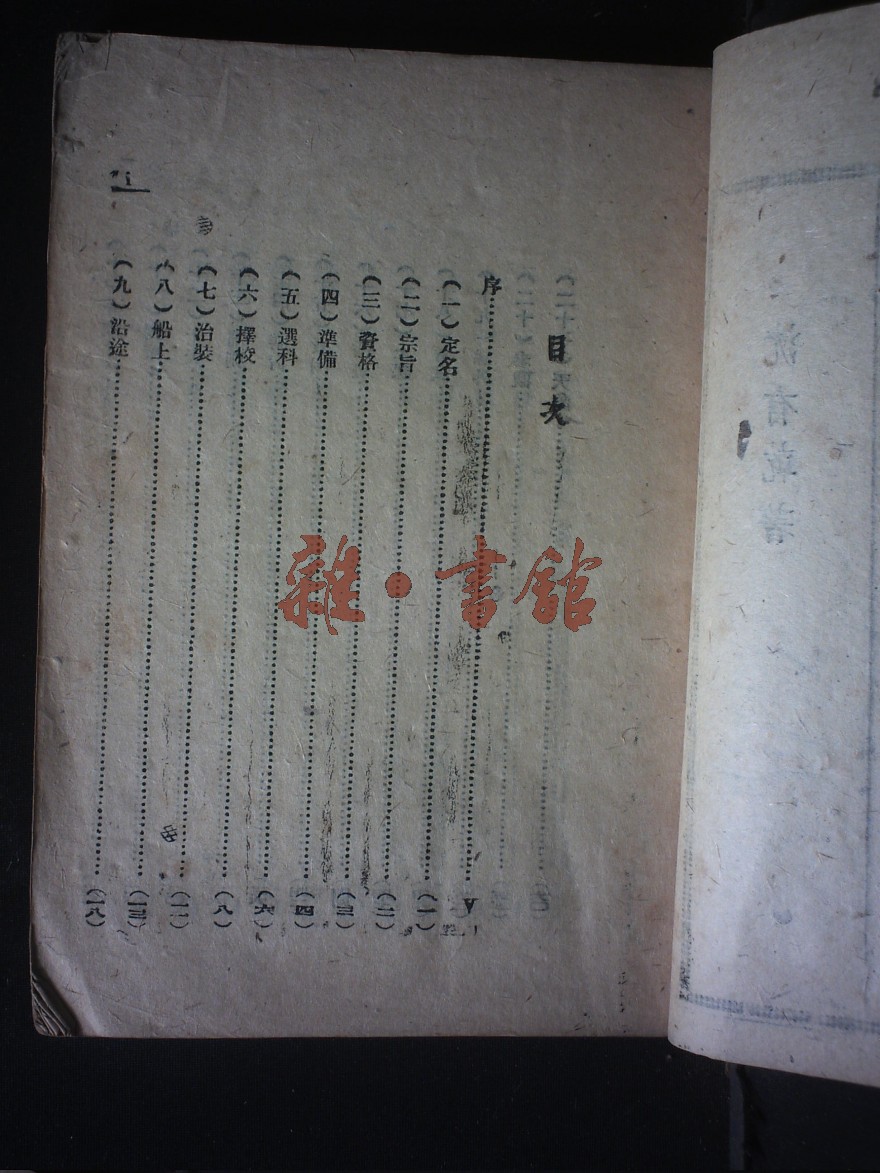 目次
序……V
(一)定名……(一)
(二)宗旨……(二)
(三)資格……(三)
(四)準備……(四)
(五)選科……(六)
(六)擇校……(八)
(七)治裝……(一一)
(八)船上……(一三)
(九)沿途……(一八)
雜·書館